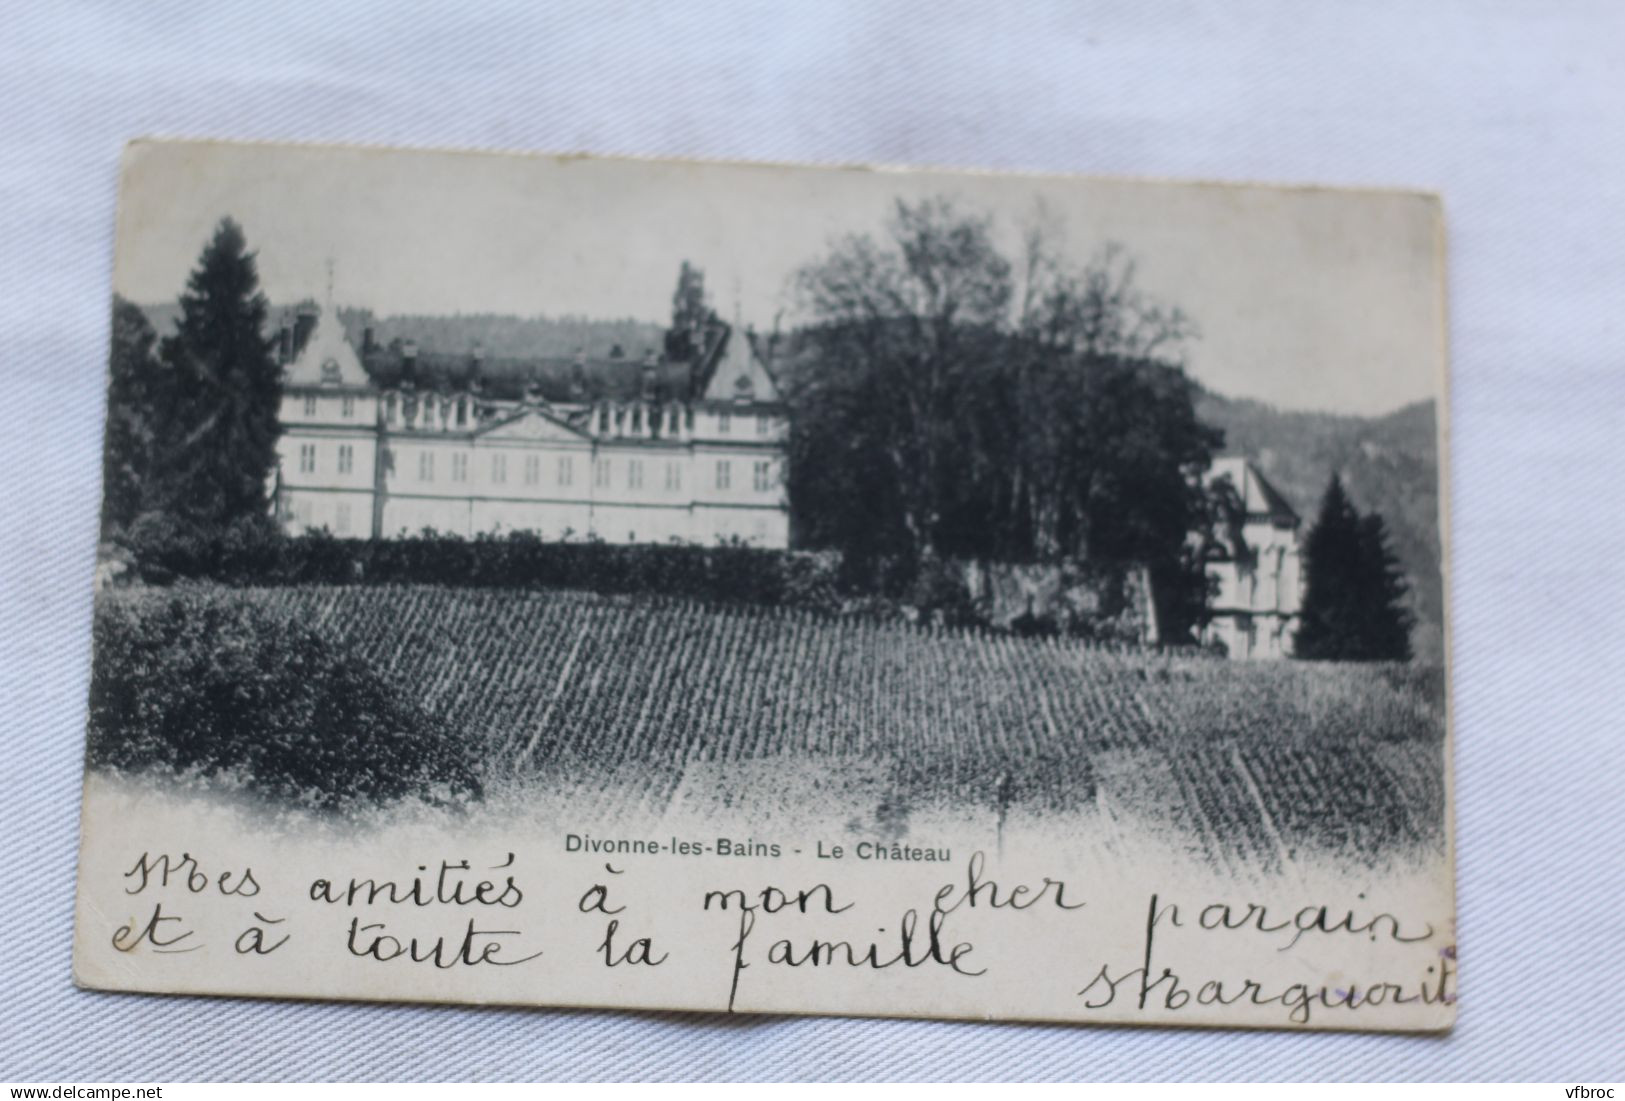 Divonne-les-Bains - Le Château
Mes amitiés à mon cher parain
et à toute la famille
Marguerit
www.delcampe.net
vfbroc